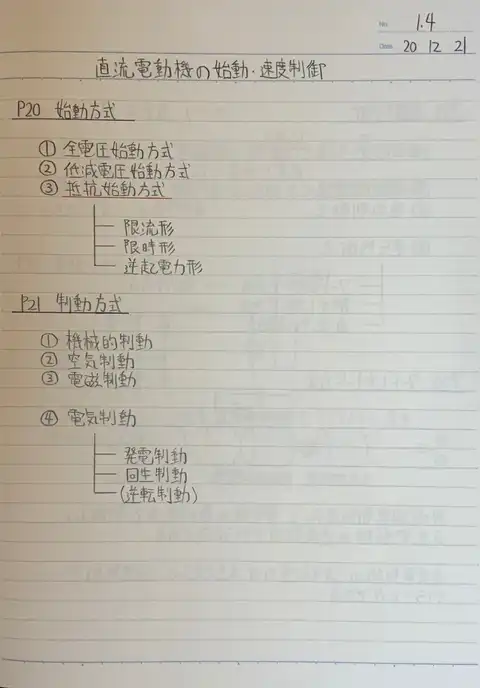 No. 1.4
Date 20 12 21
直流電動機の始動・速度制御
P20 始動方式
① 全電圧始動方式
② 低減電圧始動方式
③ 抵抗始動方式
限流形
限時形
逆起電力形
P21 制動方式
① 機械的制動
② 空気制動
③ 電磁制動
④ 電気制動
発電制動
回生制動
(逆転制動)